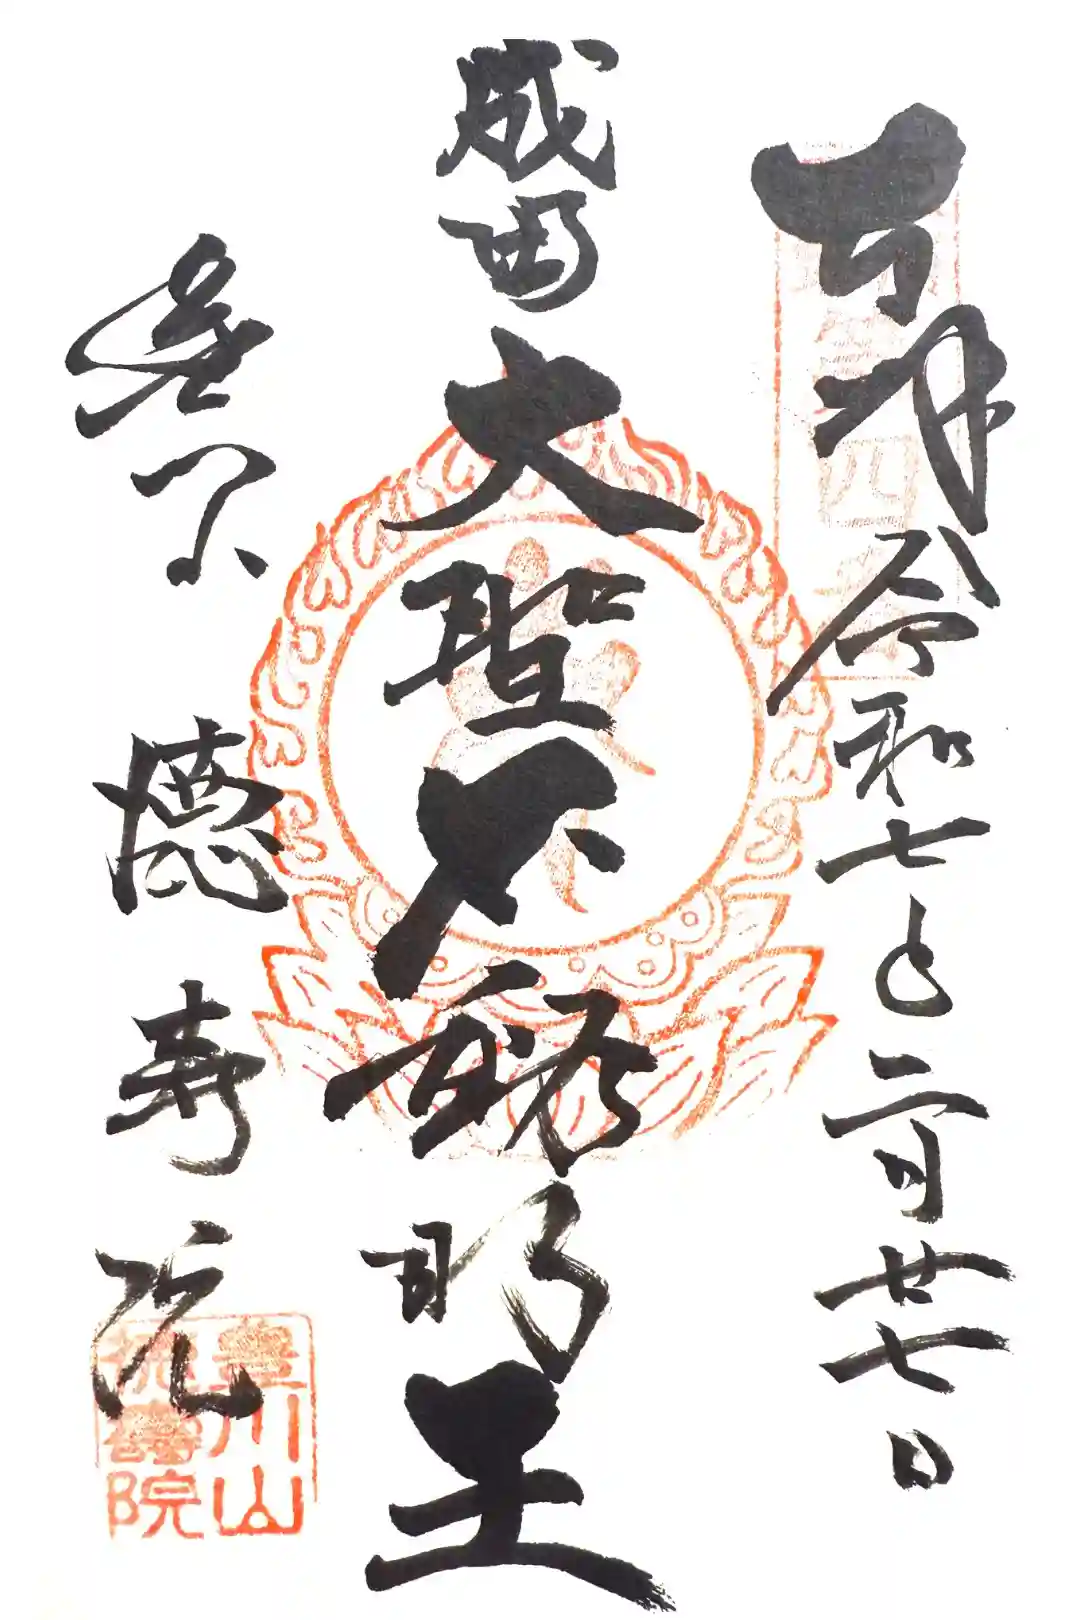 奉拝 令和七年二月廿七日
成田 大聖不動明王
徳寿院
川山
徳壽院